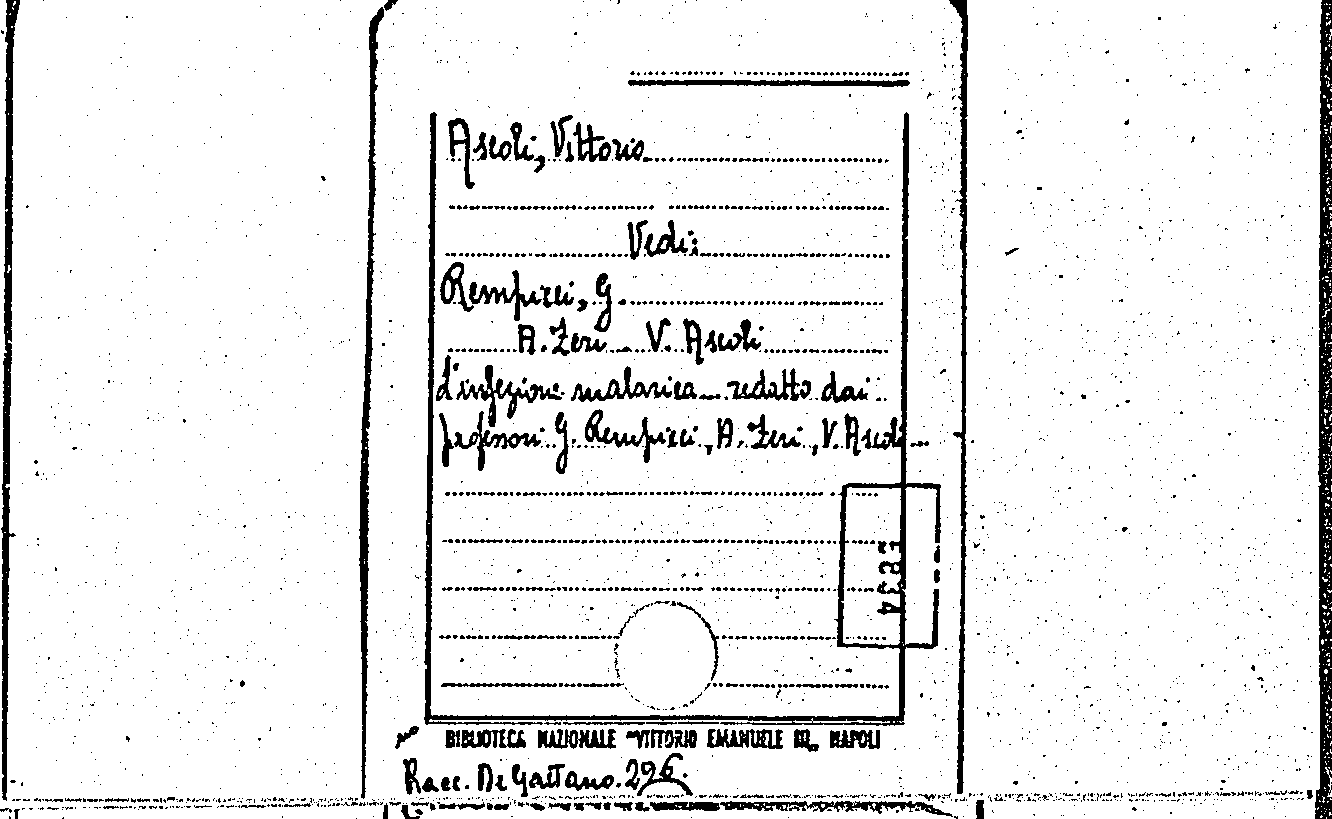 Ascoli, Vittorio
Vedi:
Rempicci, G.
A. Zeri V. Ascoli
d'infezione malarica... redatto dai
professori G. Rempicci, A. Zeri, V. Ascoli...
BIBLIOTECA NAZIONALE "VITTORIO EMANUELE III" NAPOLI
Racc. De Gaetano. 296.